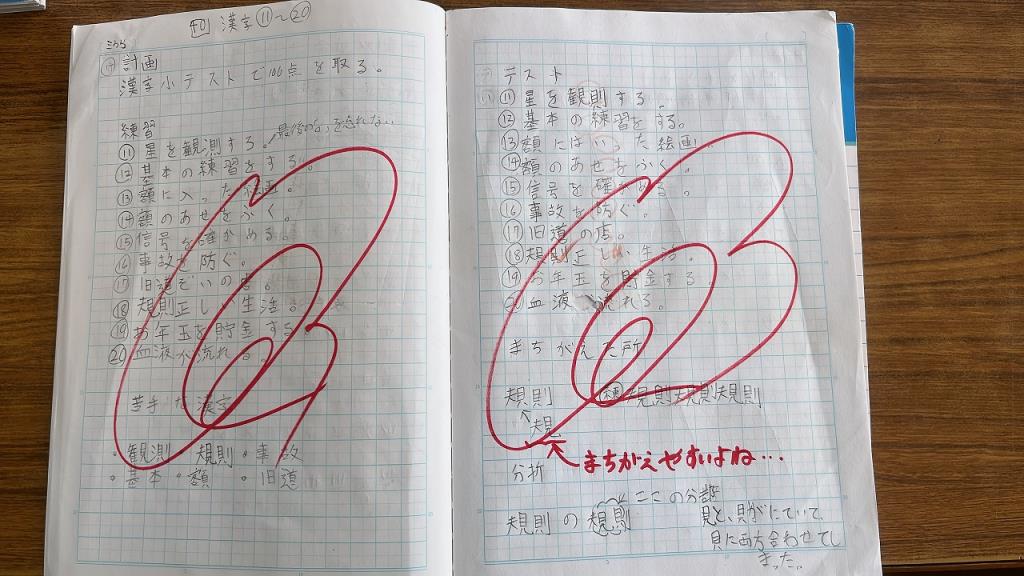 漢字⑪〜⑳
計画
漢字小テストで100点を取る。
練習
最後の。を忘れない
⑪星を観測する。
⑫基本の練習をする。
⑬額に入った絵画。
⑭額のあせをふく。
⑮信号を確かめる。
⑯事故を防ぐ。
⑰旧道
⑱規則正し 生活。
⑲お年玉を貯金する
⑳血液が流れる。
苦手な漢字
・観測 ・規則 ・事故
・基本 ・額 ・旧道
テスト
⑪星を観則する。
⑫基本の練習をする。
⑬額にはいった絵画
⑭額のあせをふく。
⑮信号を確かめる。
⑯事故を防ぐ。
⑰旧道の店。
⑱規則正しい生活。
⑲お年玉を貯金する
⑳血液 流れる。
まちがえた所
規則 規則規則規則
規
まちがえやすいよね…
分析
ここの
規則の規則
見と、貝がにていて、
貝に両方合わせてし
まった。